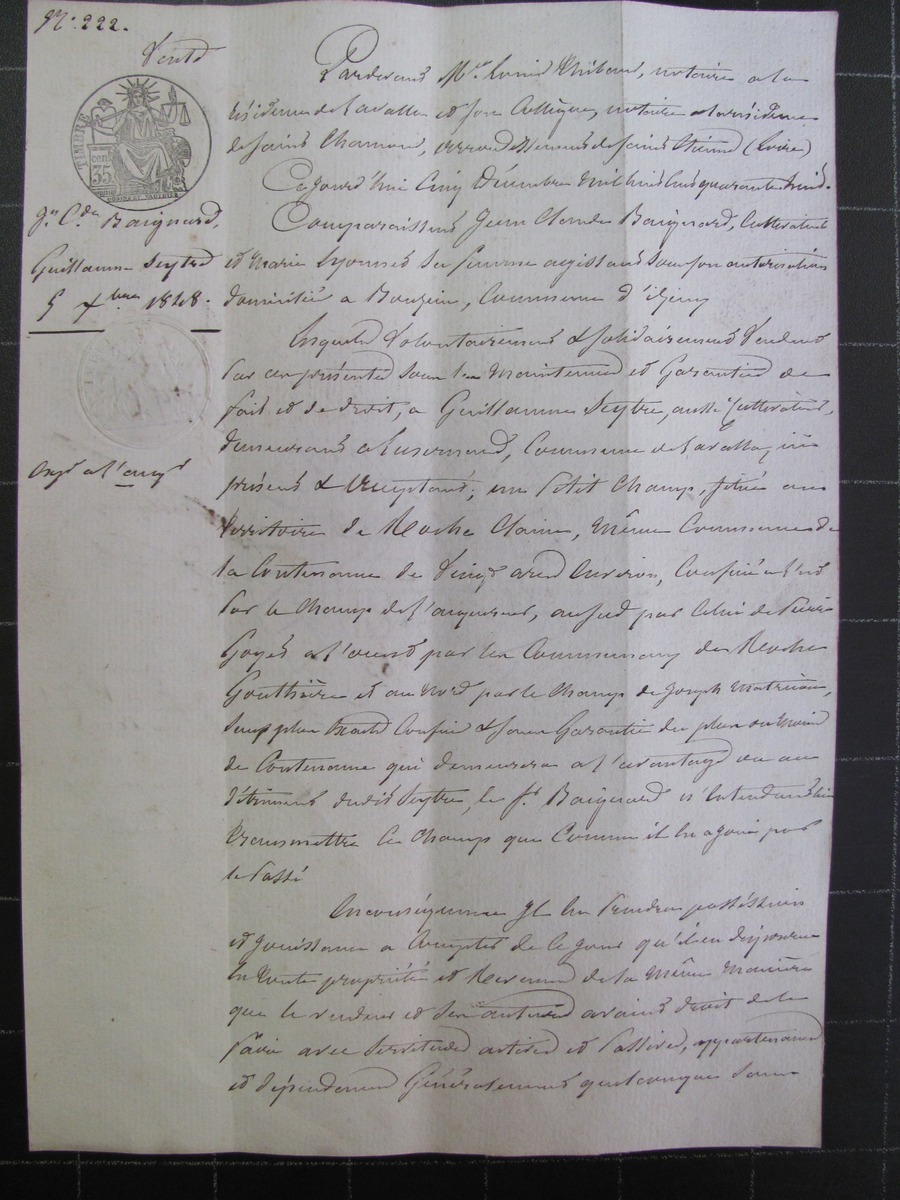 N.° 222.
Vente
TIMBRE
35
J.n C.de Baignard,
Guillaume Seytre
5 Xbre 1848.
Pardevant Me Louis Thibaud, notaire à la
résidence de Lavalla et son Collègue, notaire à la résidence
de Saint Chamond, arrondissement de Saint Etienne (Loire)
Cejourd'hui Cinq Décembre mil huit cent quarante huit.
Comparaissent Jean Claude Baignard, Cultivateur
et Marie Lyonnet sa femme agissant sous son autorisation
domiciliés à Bouzein, Commune d'Izieux
Lesquels Volontairement & solidairement Vendent
par ces présentes sous la Maintenue et Garantie de
fait et de droit, à Guillaume Seytre, aussi Cultivateur,
demeurant à Luzernod, Commune de Lavalla, ici
présent & acceptant, un petit Champ, situé au
territoire de Roche Claine, même Commune de
la Contenance de Vingt ares Environ, Confiné à l'est
par le Champ de l'acquéreur, au sud par celui de Pierre
Goyet à l'ouest par les Communaux de Roche
Gouthière et au Nord par le Champ de Joseph Matricon,
sauf plus exacts Confins & sans Garantie du plus ou Moins
de Contenance qui demeurera à l'avantage ou au
détriment dudit Seytre, le sr. Baignard n'entendant lui
transmettre ce Champ que Comme il en a joui par
le Passé
En conséquence Il en Prendra possession
et jouissance à Compter de Ce jour qu'il en disposera
en toute propriété et Revenu de la même manière
que le vendeur et ses auteurs avaient droit de le
faire avec Servitudes actives et Passives, appartenances
et dépendances Généralement quelconques sans